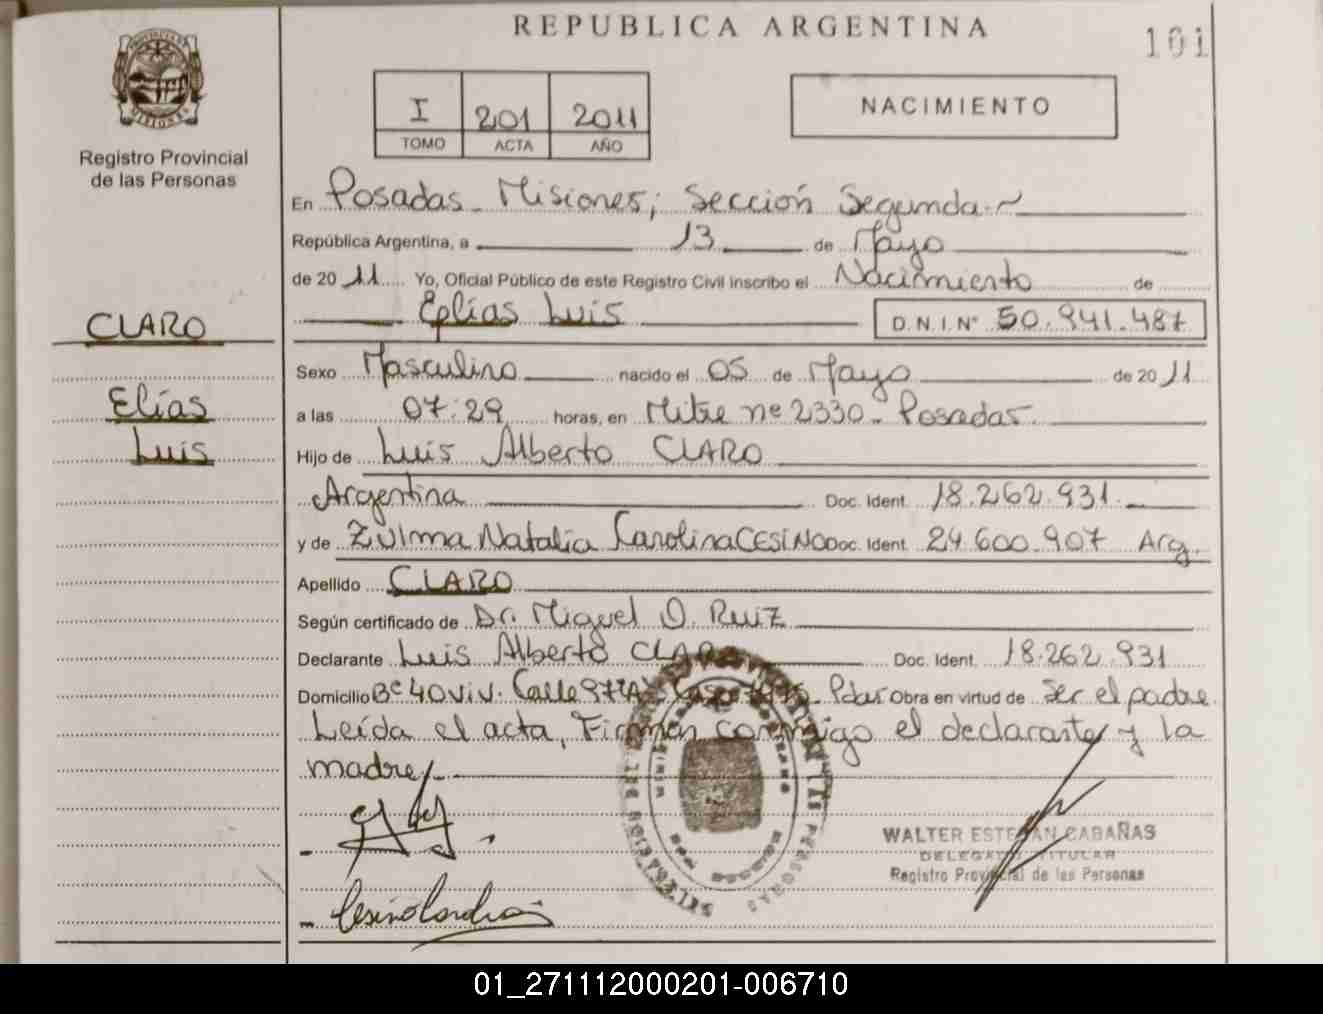 REPUBLICA ARGENTINA
101
PROVINCIA DE MISIONES
Registro Provincial
de las Personas
I 201 2011
TOMO ACTA AÑO
NACIMIENTO
En Posadas - Misiones; Sección Segunda.-
República Argentina, a 13 de Mayo
de 2011 Yo, Oficial Público de este Registro Civil inscribo el Nacimiento de
Elías Luis D.N.I.Nº 50.941.487
CLARO
Elías
Luis
Sexo Masculino nacido el 05 de Mayo de 2011
a las 07:29 horas, en Mitre nº 2330 - Posadas.
Hijo de Luis Alberto CLARO
Argentina Doc. Ident. 18.262.931.
y de Zulma Natalia Carolina CESINO Doc. Ident. 24.600.907 Arg.
Apellido CLARO
Según certificado de Dr. Miguel O. Ruiz
Declarante Luis Alberto CLARO Doc. Ident. 18.262.931
Domicilio Bº 40 Viv. Calle 97 Pdas Obra en virtud de ser el padre.
Leída el acta, Firman conmigo el declarante y la
madre.-
WALTER ESTEBAN CABAÑAS
DELEGADO TITULAR
Registro Provincial de las Personas
01_271112000201-006710